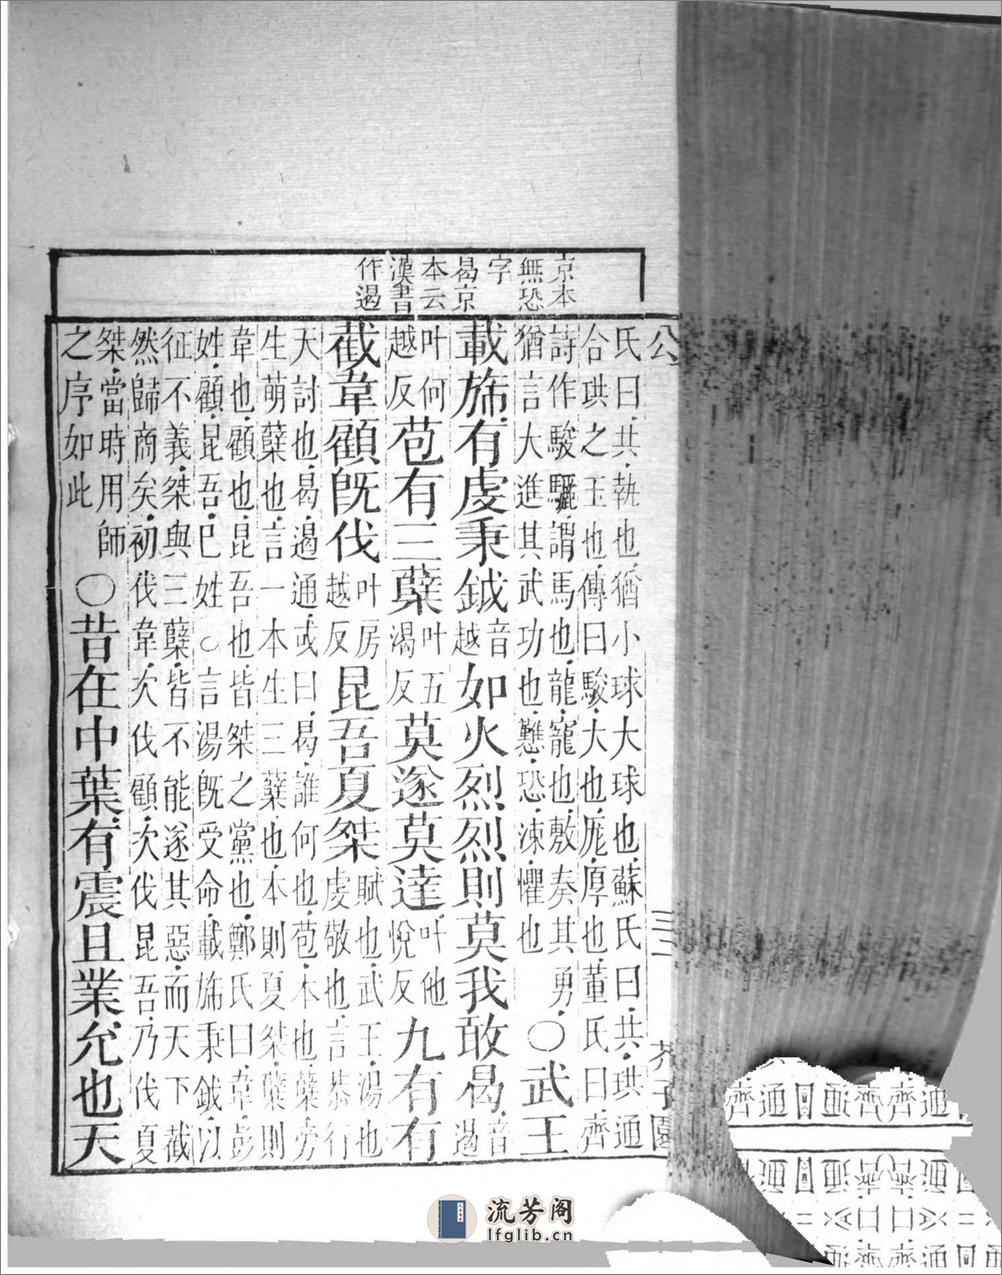 京本
無恐
字
曷京
本云
漢書
作遏
芥子園
氏曰共執也猶小球大球也蘇氏曰共珙通
合珙之王也傳曰駿大也厖厚也董氏曰齊
詩作駿驪謂馬也龍寵也敷奏其勇
猶言大進其武功也戁恐竦懼也○武王
載斾有虔秉鉞音越如火烈烈則莫我敢曷音遏
叶何越反苞有三蘖叶五渴反莫遂莫達叶他悅反九有有
截韋顧旣伐叶房越反昆吾夏桀賦也武王湯也虔敬也言恭行
天討也曷遏通或曰曷誰何也苞木也蘖旁
生萌蘖也言一本生三蘖也本則夏桀蘖則
韋也顧也昆吾也皆桀之黨也鄭氏曰韋彭
姓顧昆吾巳姓○言湯旣受命載斾秉鉞以
征不義桀與三蘖皆不能遂其惡而天下截
然歸商矣初伐韋次伐顧次伐昆吾乃伐夏
桀當時用師
之序如此○昔在中葉有震且業允也天
流芳阁
lfglib.cn